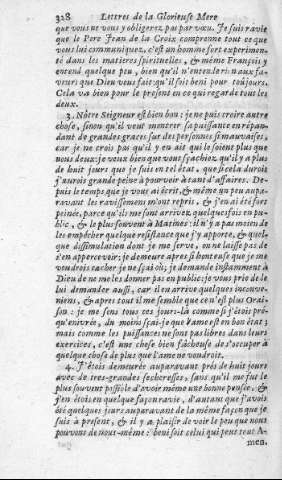 328 Lettres de la Glorieuse Mere
que vous ne vous y obligerez pas par vœu. Je suis ravie
que le Pere Jean de la Croix comprenne tout ce que
vous lui communiquez, c'est un homme fort experimen-
té dans les matieres spirituelles, & même François y
entend quelque peu, bien qu'il n'entende rien aux fa-
veurs que Dieu vous fait qu'il fait beni pour toujours.
Cela va bien pour le present en ce qui regarde tout les
deux.
3. Nôtre Seigneur est bien bon; je ne puis croire autre
chose, sinon qu'il veut montrer sa puissance en répan-
dant de grandes graces sur des personnes si mauvaises;
car je ne crois pas qu'il y en ait qui le soient plus que
nous deux: je veux bien que vous sçachiez qu'il y a plus
de huit jours que je suis en tel état, que si cela duroit
j'aurois grande peine à pourvoir à tant d'affaires. De-
puis le temps que je vous ai écrit, & même un peu aupa-
ravant les ravissemens m'ont repris, & j'en ai été fort
peinée, parce qu'ils me sont arrivez quelques fois en pu-
blic, & le plus souvent à Matines: il n'y a pas moien de
les empêcher quelque resistance que j'y apporte, & quel-
que dissimulation dont je me serve, on ne laisse pas de
s'en appercevoir; je demeure après si honteuse que je me
voudrois cacher je ne sçai où; je demande instamment à
Dieu de ne me les donner pas en public; je vous prie de le
lui demander aussi, car il en arrive quelques inconve-
niens, & après tout il me semble que ce n'est plus Orai-
son: je me sens tous ces jours-là comme si j'étois pres-
qu'enivrée, du moins sçai-je que l'ame est en bon état;
mais comme les puissances ne sont pas libres dans leurs
exercices, c'est une chose bien fâcheuse de s'occuper à
quelque chose de plus que l'ame ne voudroit.
4. J'étois demeurée auparavant près de huit jours
avec de tres-grandes secheresses, sans qu'il me fut le
plus souvent possible d'avoir même une bonne pensée, &
j'en étois en quelque façon ravie, d'autant que j'avois
été quelques jours auparavant de la même façon que je
suis à present, & il y a plaisir de voir le peu que nous
pouvons de nous-même: beni soit celui qui peut tout A-
men.